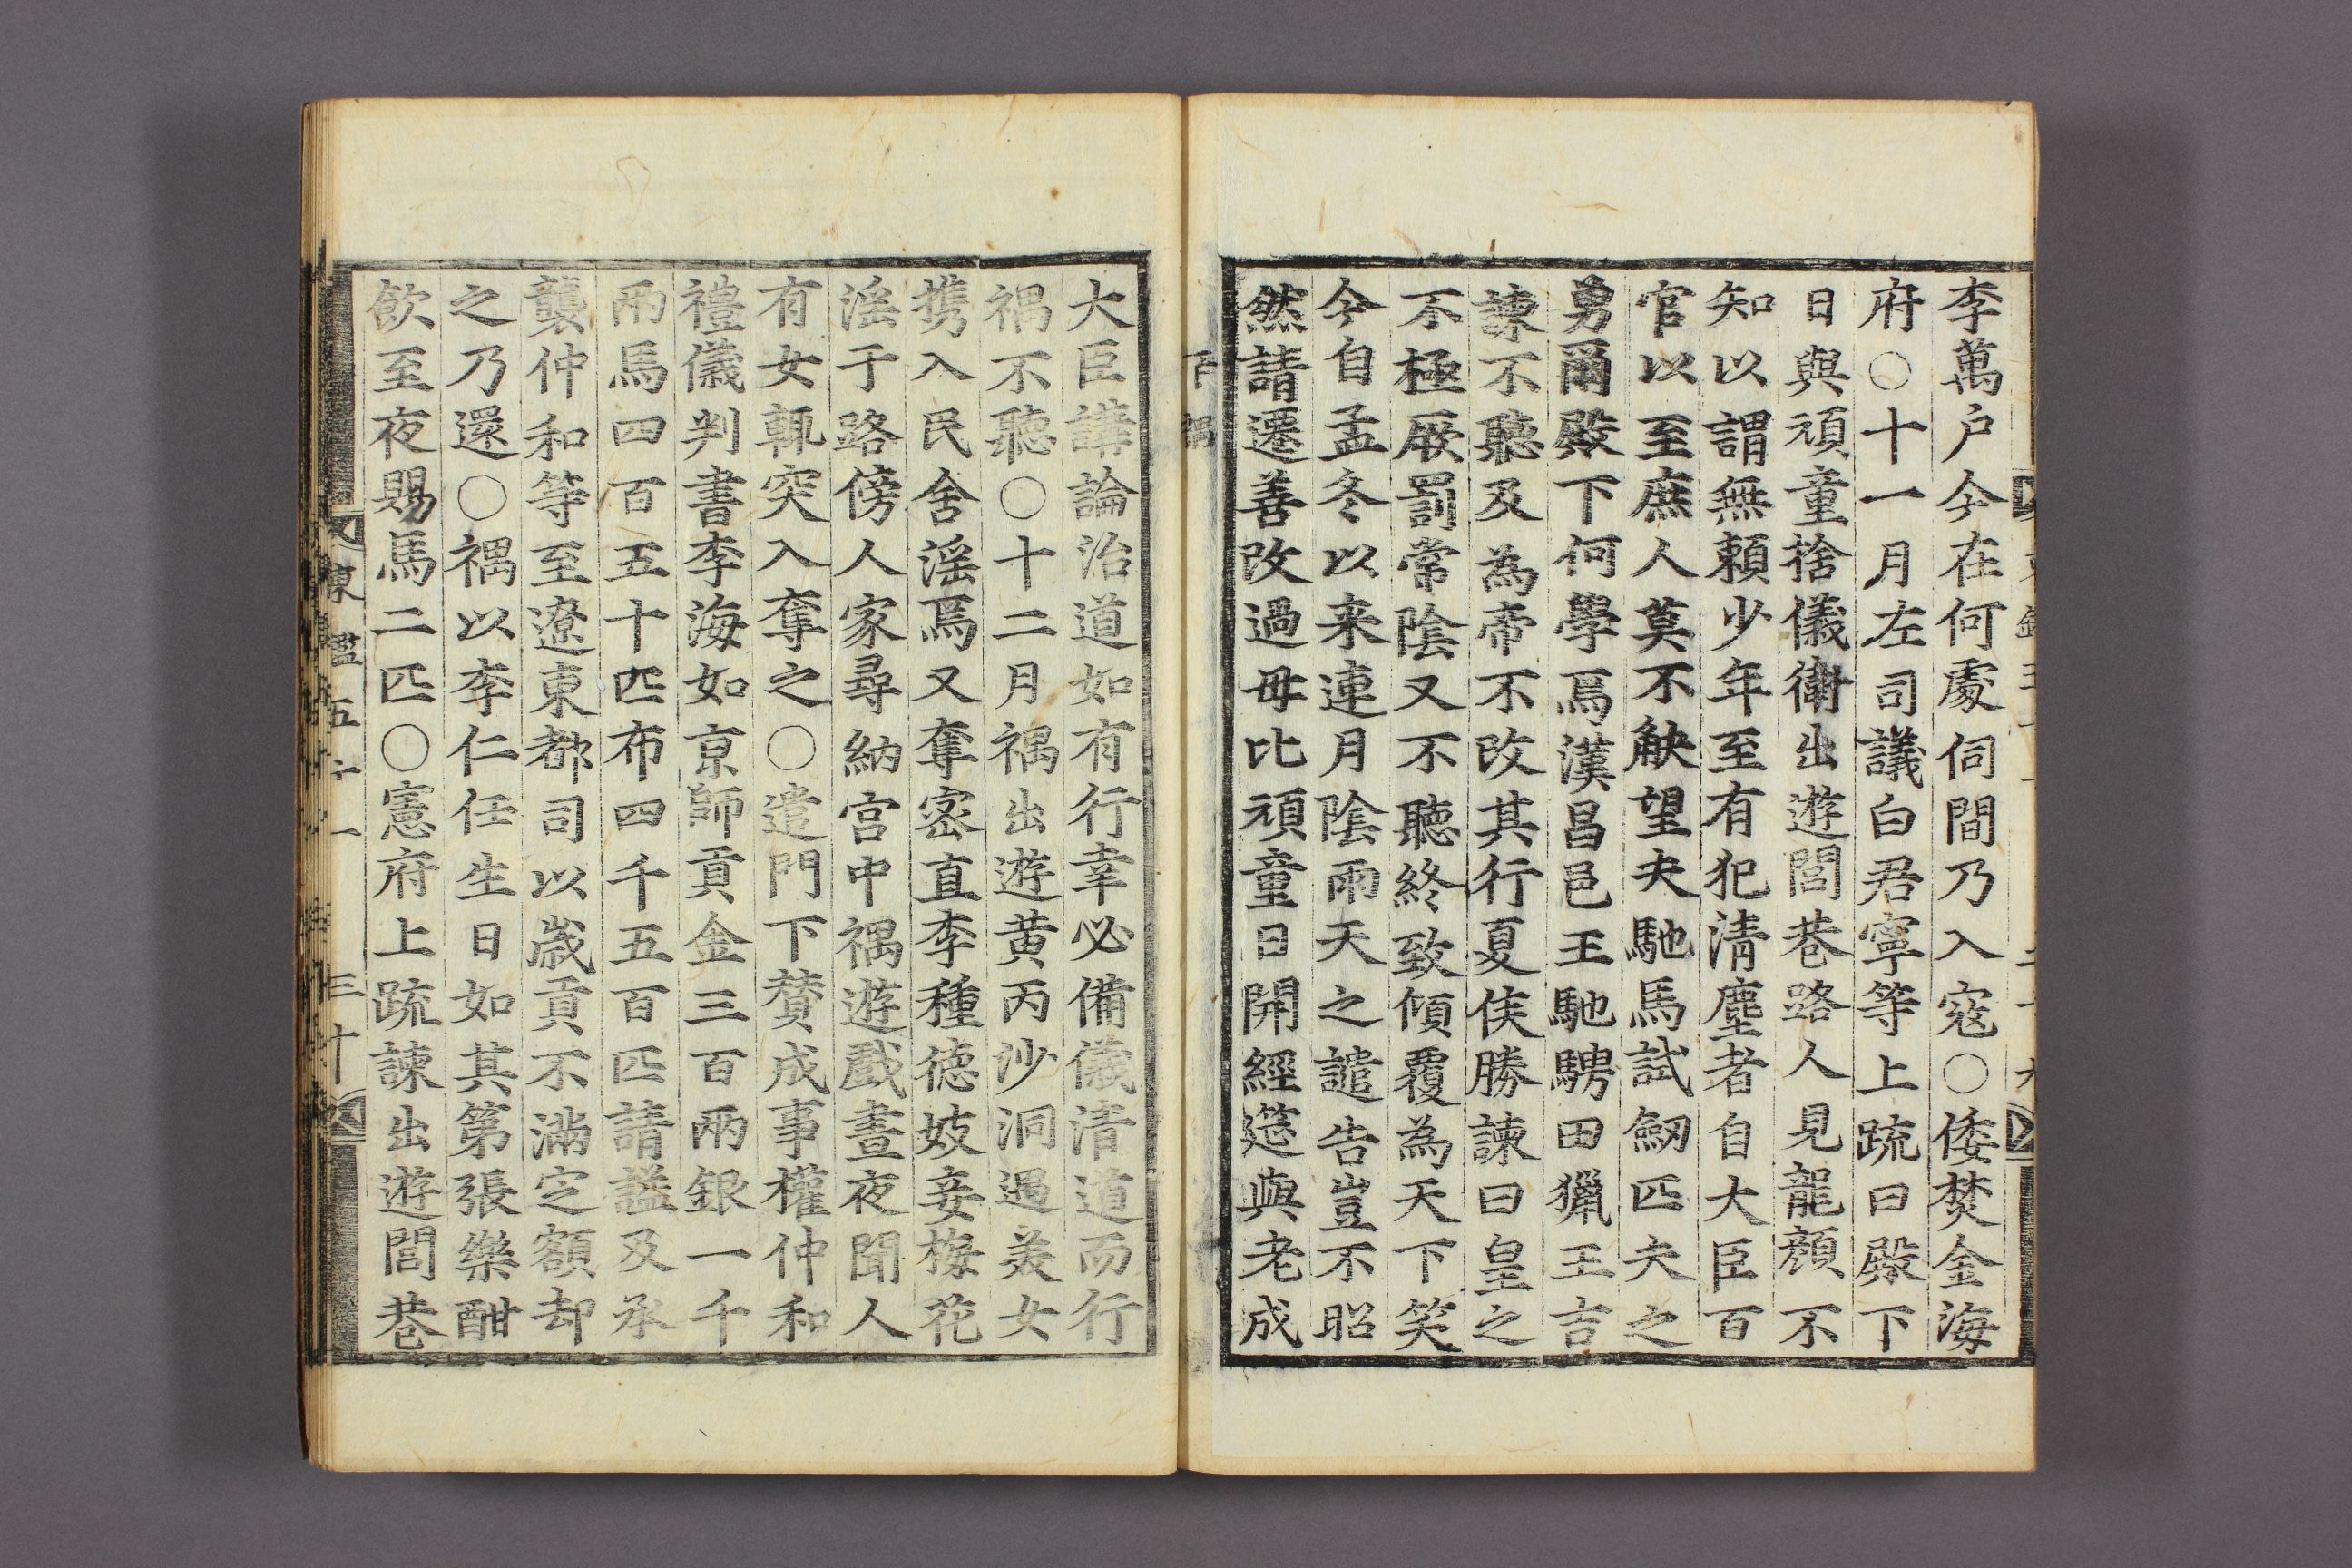 李萬户今在何處伺間乃入寇○倭焚金海
府○十一月左司議白君寧等上疏曰殿下
日與頑童捨儀衛出遊閭巷路人見龍顔不
知以謂無賴少年至有犯清塵者自大臣百
官以至庶人莫不觖望夫馳馬試劔匹夫之
勇爾殿下何學焉漢昌邑王馳騁田獵王吉
諫不聽及為帝不改其行夏侯勝諫曰皇之
不極厥罰常陰又不聽終致傾覆為天下笑
今自孟冬以来連月陰雨天之譴告豈不昭
然請遷善改過毋比頑童日開經筵與老成
下禑
大臣講論治道如有行幸必備儀清道而行
禑不聽○十二月禑出遊黄丙沙洞遇美女
携入民舍淫焉又奪密直李種德妓妾梅花
淫于路傍人家尋納宫中禑遊戲晝夜聞人
有女輒突入奪之○遣門下賛成事權仲和
禮儀判書李海如京師貢金三百兩銀一千
兩馬四百五十匹布四千五百匹請謚及承
襲仲和等至遼東都司以歲貢不滿定額却
之乃還○禑以李仁任生日如其第張樂酣
飲至夜賜馬二匹○憲府上疏諫出遊閭巷
東鑑五十一
三十